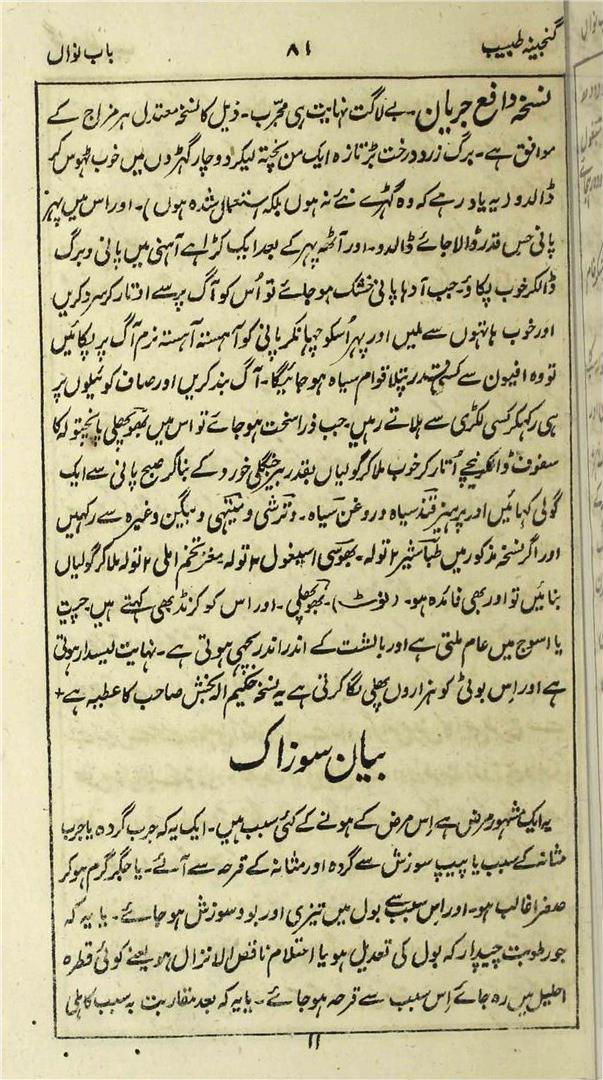 گنجینہ طبیب ۸۱ باب نواں
نسخہ دافع جریان۔ بے لاگت نہایت ہی مجرب۔ ذیل کا نسخہ معتدل ہر مزاج کے
موافق ہے۔ برگ زرد درخت بڑ تازہ ایک من پختہ لیکر دو چار گھڑوں میں خوب ٹھوس کر
ڈالدو (یہ یاد رہے کہ وہ گھڑے نئے نہ ہوں بلکہ استعمال شدہ ہوں)۔ اور اس میں پھر
پانی جس قدر ڈالا جائے ڈالدو۔ اور آٹھ پہر کے بعد ایک کڑاہے آہنی میں پانی و برگ
ڈالکر خوب پکاؤ جب آدھا پانی خشک ہو جائے تو اُس کو آگ پر سے اوتار کر سرد کریں
اور خوب ہاتھوں سے ملیں اور پھر اُسکو چھانکر پانی کو آہستہ آہستہ نرم آگ پر پکائیں
تو وہ افیون سے کسیقدر پتلا قوام سیاہ ہو جائیگا۔ آگ بند کریں اور صاف کوئیلوں پر
ہی رکھکر کسی لکڑی سے ہلاتے رہیں۔ جب ذرا سخت ہو جائے تو اس میں بھوپھلی پانچتولہ کا
سفوف ڈالکر نیچے اُتار کر خوب ملا کر گولیاں بقدر بیر جنگلی خورد کے بنا کر صبح پانی سے ایک
گولی کہائیں اور پرہیز قند سیاہ و روغن سیاہ۔ و ترشی و میتھی و بینگن وغیرہ سے رکھیں
اور اگر نسخہ مذکور میں طباشیر ۲ تولہ۔ بھوسی اسپغول ۳ تولہ مغز تخم املی ۲ تولہ ملا کر گولیاں
بنائیں تو اور بھی فائدہ ہو۔ (نوٹ)۔ بھوپھلی۔ اور اس کو کرنڈ بھی کہتے ہیں۔ چیت
یا اسوج میں عام ملتی ہے اور بالشت کے اندر اندر بچھی ہوتی ہے۔ نہایت لیسدار ہوتی
ہے اور اس بوٹی کو ہزاروں پھلی لگا کرتی ہے یہ نسخہ حکیم الہ بخش صاحب کا عطیہ ہے +
بیان سوزاک
یہ ایک مشہور مرض ہے اِس مرض کے ہونے کے کئی سبب ہیں۔ ایک یہ کہ جرب گردہ یا جرب
مثانہ کے سبب یا پیپ سوزش سے گردہ اور مثانہ کے قرحہ سے آئے۔ یا جگر گرم ہو کر
صفرا غالب ہو۔ اور اس سبب سے بول میں تیزی اور بو و سوزش ہو جائے۔ یا یہ کہ
جو رطوبت چیپدار کہ بول کی تعدیل ہو یا احتلام ناقص الانزال ہو یعنے کوئی قطرہ
احلیل میں رہ جائے اِس سبب سے قرحہ ہو جائے۔ یا یہ کہ بعد مقاربت بہ سبب کاہلی
۱۱